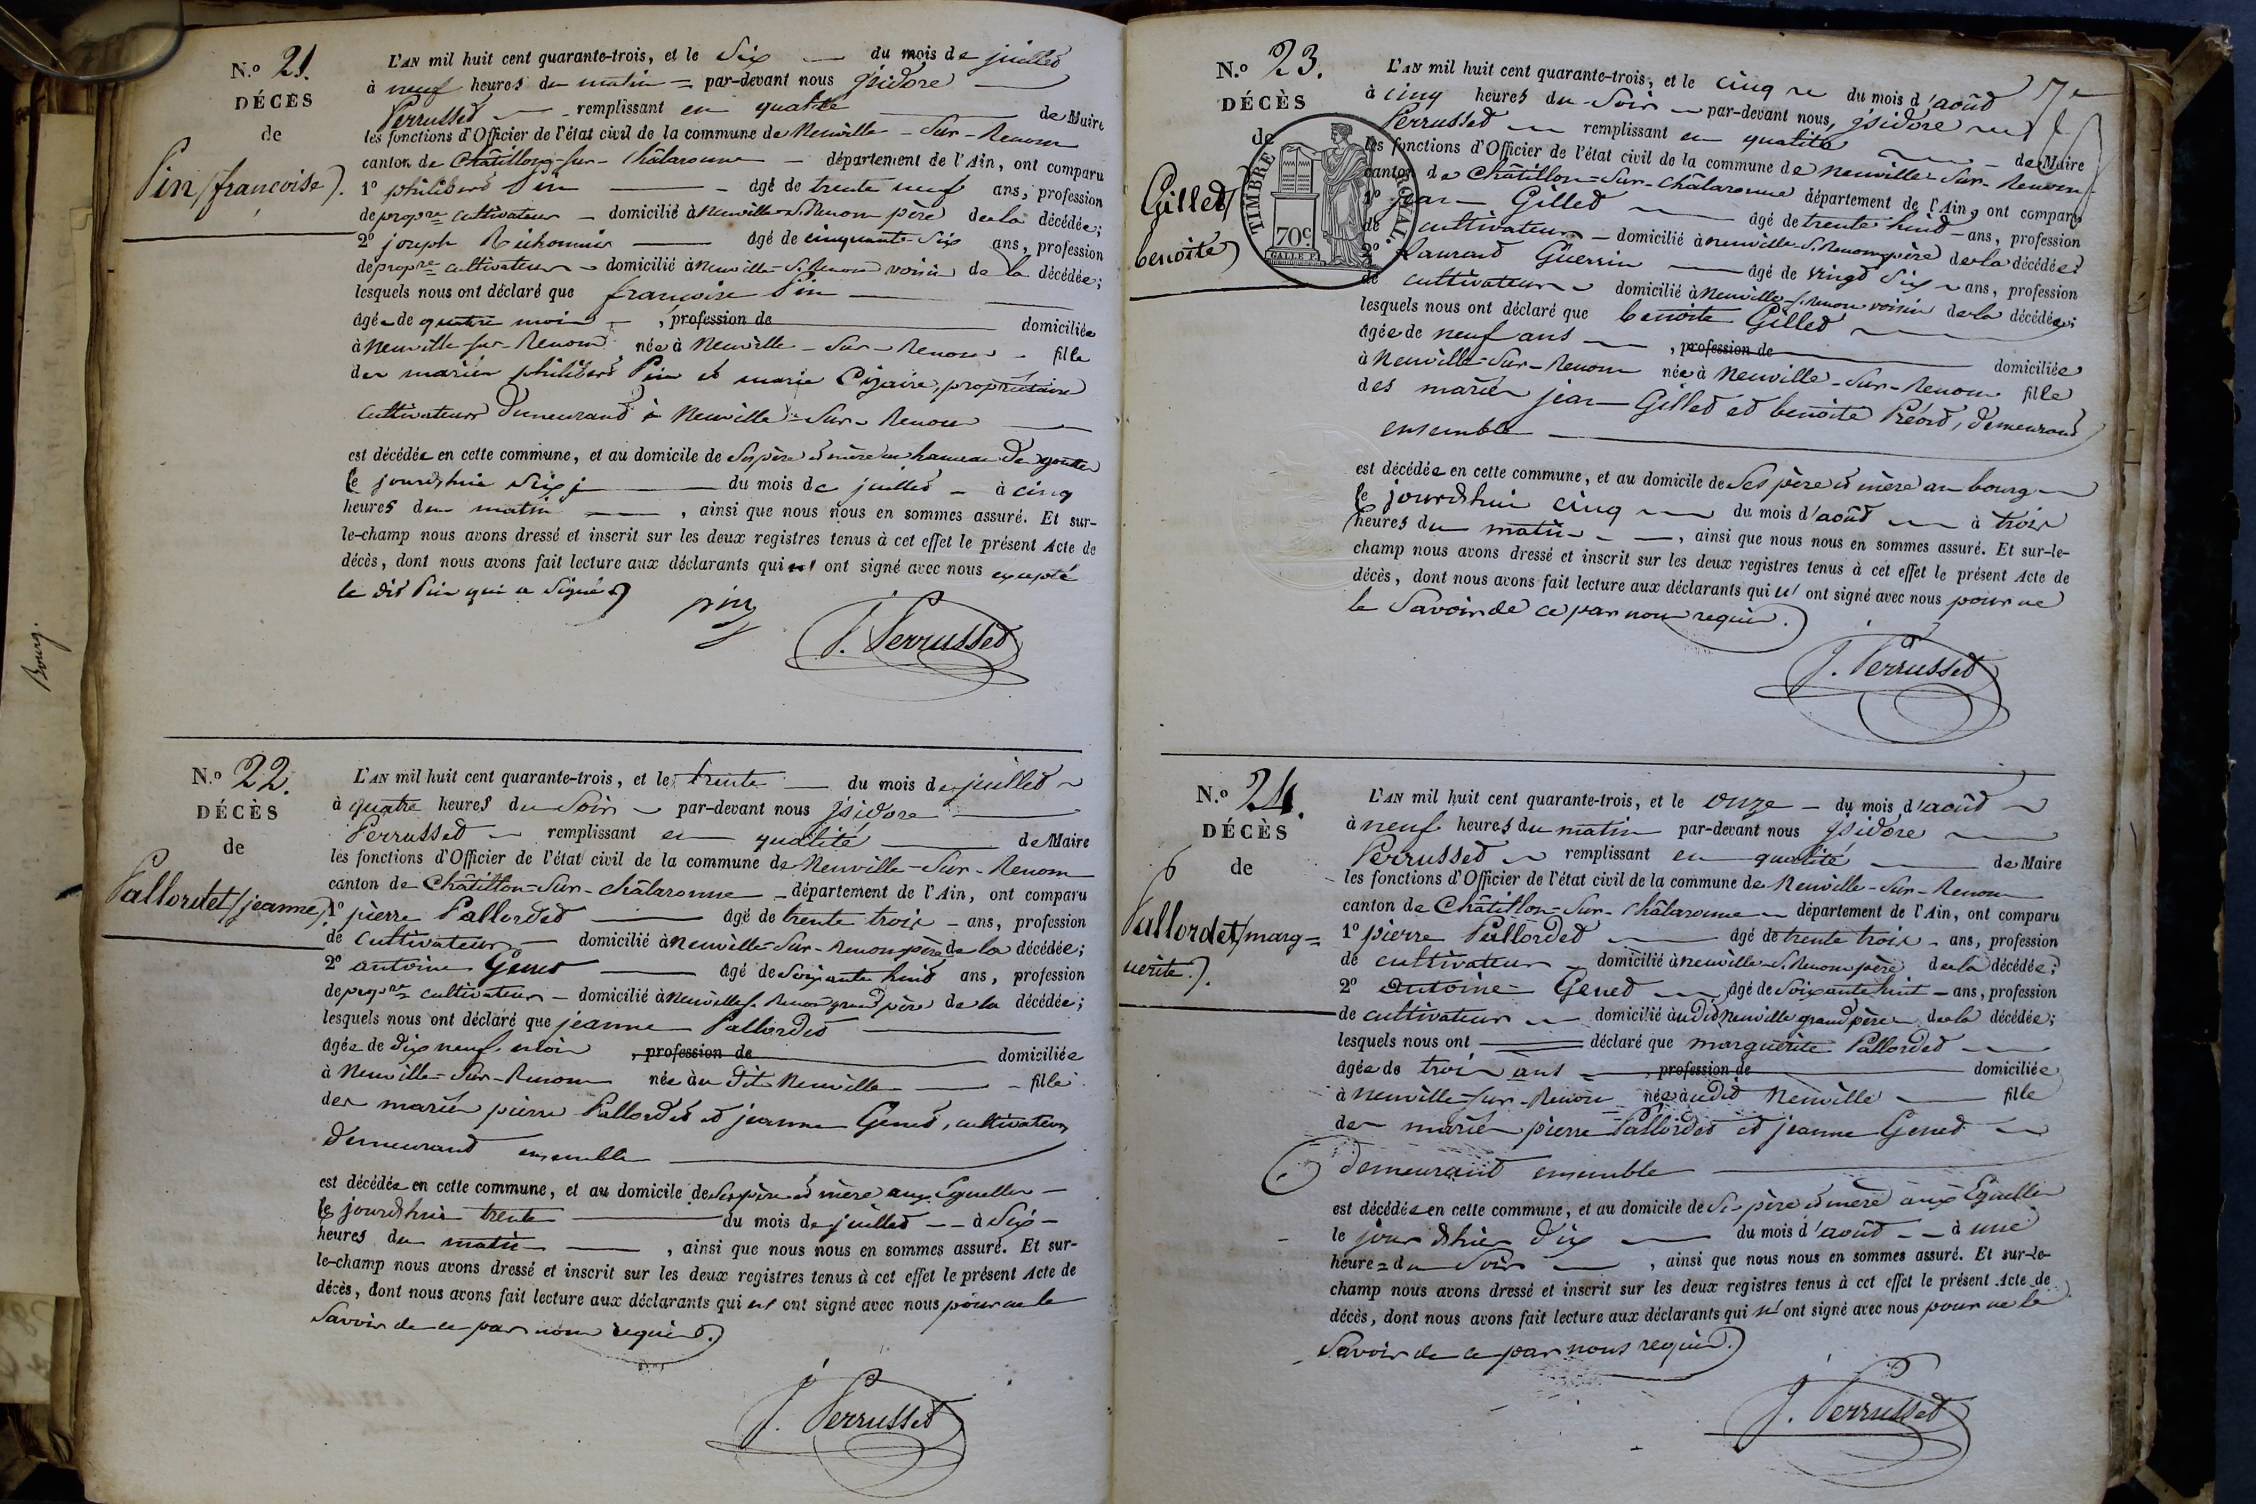 Bourg.
N.º 21.
DÉCÈS
de
Pin (françoise).
L'AN mil huit cent quarante-trois, et le Six du mois de juillet
à neuf heures du matin par-devant nous jsidore
Perrusset remplissant en qualité de Maire
les fonctions d'Officier de l'état civil de la commune de Neuville-Sur-Renom
canton de Châtillon-sur-Châlaronne département de l'Ain, ont comparu
1º philibert Pin âgé de trente neuf ans, profession
de propre cultivateur domicilié à neuville-S.-Renom père de la décédée;
2º joseph âgé de cinquante-Six ans, profession
de propre cultivateur domicilié à Neuville-S.-Renom voisin de la décédée;
lesquels nous ont déclaré que françoise Pin
âgée de quatre mois, profession de domiciliée
à Neuville-sur-Renom née à Neuville-Sur-Renom fille
des mariés philibert Pin et marie Cizaire, propriétaire
cultivateurs demeurand à Neuville-Sur-Renom
est décédée en cette commune, et au domicile de Ses père et mère au hameau de
le jourdhui Six du mois de juillet à cinq
heures du matin, ainsi que nous nous en sommes assuré. Et sur-
le-champ nous avons dressé et inscrit sur les deux registres tenus à cet effet le présent Acte de
décès, dont nous avons fait lecture aux déclarants qui n' ont signé avec nous excepté
le dit Pin qui a Signé
pin
J. Perrusset
N.º 22.
DÉCÈS
de
Pallordet (jeanne)
L'AN mil huit cent quarante-trois, et le trente du mois de juillet
à quatre heures du Soir par-devant nous jsidore
Perrusset remplissant en qualité de Maire
les fonctions d'Officier de l'état civil de la commune de Neuville-Sur-Renom
canton de Châtillon-Sur-châlaronne département de l'Ain, ont comparu
1º pierre Pallordet âgé de trente trois ans, profession
de cultivateur domicilié à neuville-Sur-Renom père de la décédée;
2º antoine Genet âgé de Soixante huit ans, profession
de propre cultivateur domicilié à Neuville S. Renom grand père de la décédée;
lesquels nous ont déclaré que jeanne Pallordet
âgée de dix neuf mois, profession de domiciliée
à Neuville-Sur-Renom née au dit Neuville fille
des mariés pierre Pallordet et jeanne Genet, cultivateurs
demeurand ensemble
est décédée en cette commune, et au domicile de Ses père et mère aux Eguelles
le jourdhui trente du mois de juillet à Six
heures du matin, ainsi que nous nous en sommes assuré. Et sur-
le-champ nous avons dressé et inscrit sur les deux registres tenus à cet effet le présent Acte de
décès, dont nous avons fait lecture aux déclarants qui n' ont signé avec nous pour ne le
Savoir de ce par nous requis.
J. Perrusset
N.º 23.
DÉCÈS
de
Gillet (
benoite)
TIMBRE ROYAL.
70c
L'AN mil huit cent quarante-trois, et le cinq du mois d'août
à cinq heures du Soir par-devant nous, jsidore
Perrusset remplissant en qualité de Maire
les fonctions d'Officier de l'état civil de la commune de Neuville-Sur-Renom
canton de Châtillon-Sur-châlaronne département de l'Ain, ont comparu
1º jean Gillet âgé de trente huit ans, profession
de cultivateur domicilié à neuville-S.Renom père de la décédée;
2º Laurend Guerrin âgé de vingt Six ans, profession
de cultivateur domicilié à Neuville-S.Renom voisin de la décédée;
lesquels nous ont déclaré que benoite Gillet
âgée de neuf ans, profession de domiciliée
à Neuville-Sur-Renom née à Neuville-Sur-Renom fille
des mariés jean Gillet et benoite Préord, demeurand
ensemble
est décédée en cette commune, et au domicile de Ses père et mère au bourg
le jourdhui cinq du mois d'août à trois
heures du matin, ainsi que nous nous en sommes assuré. Et sur-le-
champ nous avons dressé et inscrit sur les deux registres tenus à cet effet le présent Acte de
décès, dont nous avons fait lecture aux déclarants qui n' ont signé avec nous pour ne
le Savoir de ce par nous requis.
J. Perrusset
N.º 24.
DÉCÈS
de
Pallordet (marg=
uerite).
L'AN mil huit cent quarante-trois, et le onze du mois d'août
à neuf heures du matin par-devant nous jsidore
Perrusset remplissant en qualité de Maire
les fonctions d'Officier de l'état civil de la commune de Neuville-Sur-Renom
canton de Châtillon-Sur-châlaronne département de l'Ain, ont comparu
1º pierre Pallordet âgé de trente trois ans, profession
de cultivateur domicilié à neuville-S.Renom père de la décédée;
2º antoine Genet âgé de Soixante huit ans, profession
de cultivateur domicilié audit Neuville grand père de la décédée;
lesquels nous ont déclaré que marguerite Pallordet
âgée de trois ans, profession de domiciliée
à Neuville-Sur-Renom née audit Neuville fille
des mariés pierre Pallordet et jeanne Genet
demeurant ensemble
est décédée en cette commune, et au domicile de Ses père et mère aux Eguelles
le jour dhier dix du mois d'août à une
heure du Soir, ainsi que nous nous en sommes assuré. Et sur-le-
champ nous avons dressé et inscrit sur les deux registres tenus à cet effet le présent Acte de
décès, dont nous avons fait lecture aux déclarants qui n' ont signé avec nous pour ne le
Savoir de ce par nous requis.
J. Perrusset